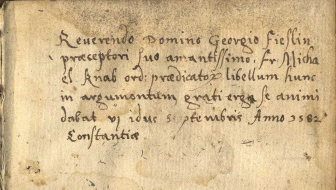 Reverendo Domino Georgio Fieslin
præceptori suo amantissimo. Fr. Micha
el Knab ord: prædicator libellum hunc
in argumentum grati erga se animi
dabat vi idus Septembris Anno 1582
Constantiæ